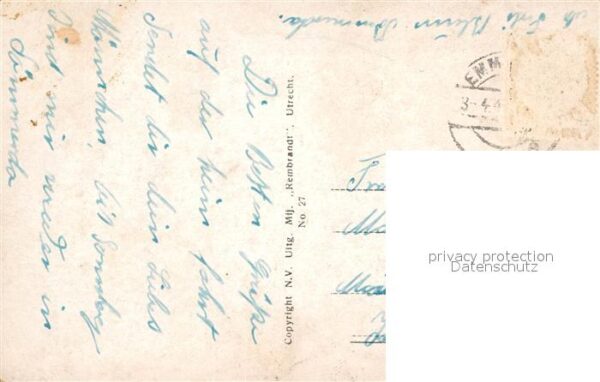 Die Besten Grüße
auf der heim fahrt
Sendet dir dein Liebes
Männchen, bis Sonntag
sind wir wieder in
Sömmerda
Sömmerda.
Copyright N.V. Uitg. Mij. „Rembrandt", Utrecht.
No. 27
EMM
3-4.4
Fra
Ma
privacy protection
Datenschutz